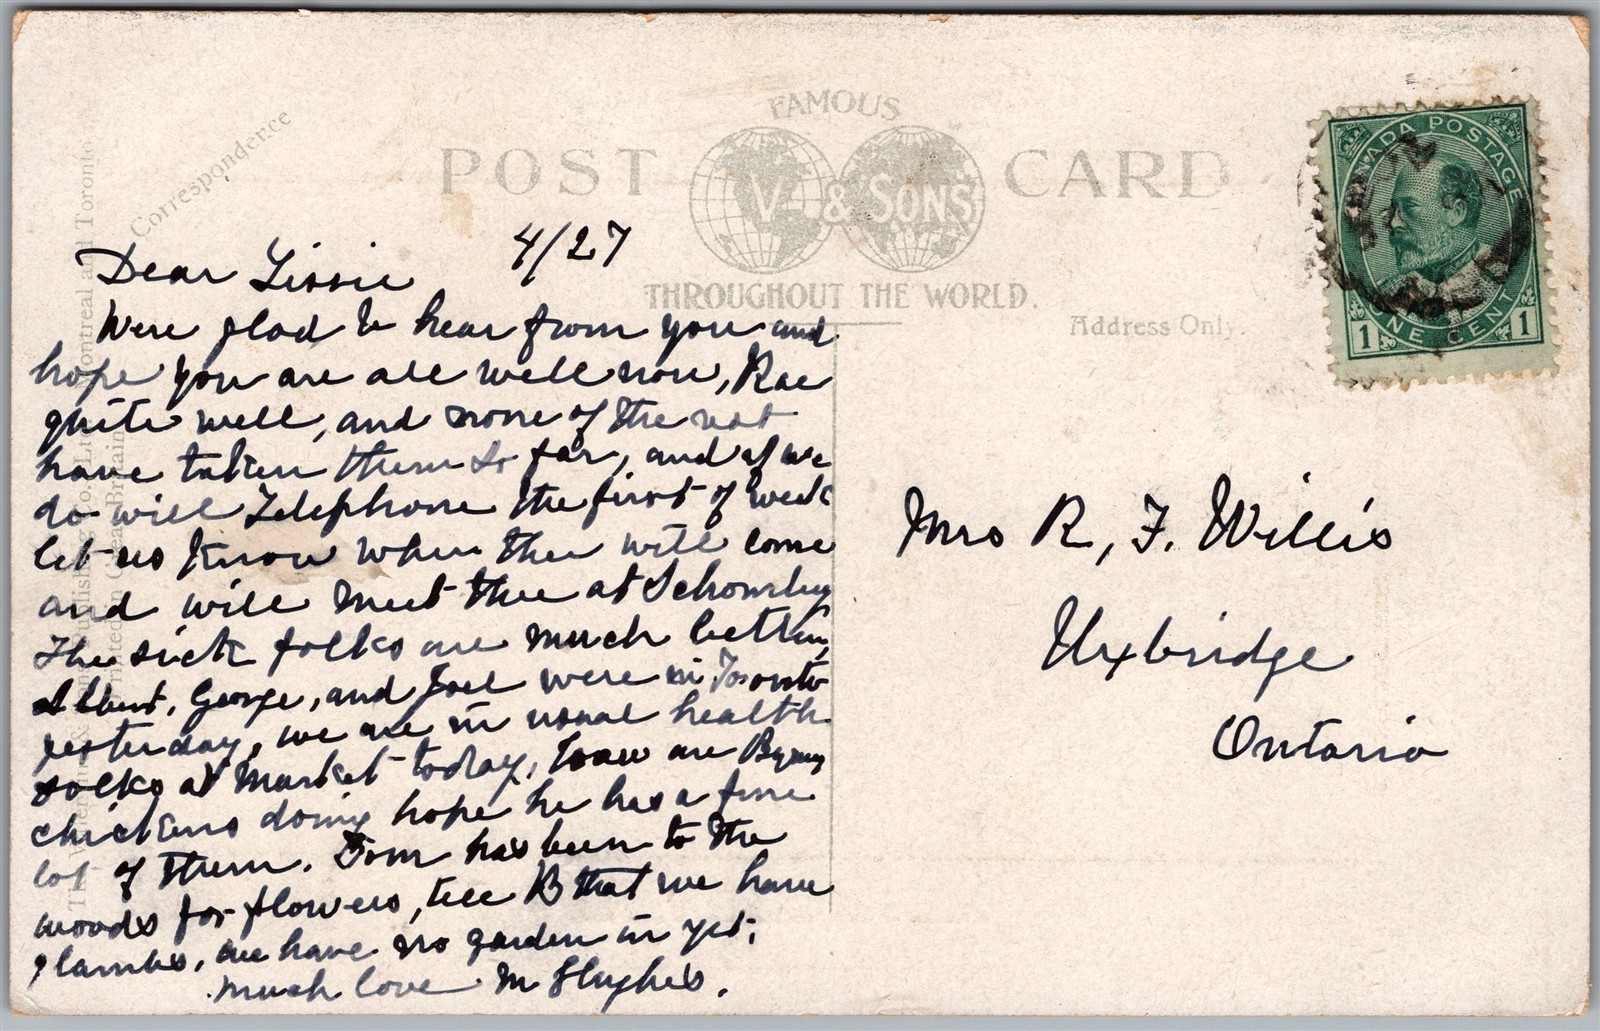 FAMOUS
POST CARD
V. & SONS
THROUGHOUT THE WORLD.
Correspondence
Address Only.
CANADA POSTAGE
1 ONE CENT 1
Montreal and Toronto
4/27
Dear Lissie
Were glad to hear from you and
hope you are all well now, Rae
quite well, and none of the rest
have taken them so far, and if we
do will Telephone the first of week
let us know when thee will come
and will meet thee at Schomberg
The sick folks are much better,
Albert, George, and Joel were in Toronto
yesterday, we are in usual health
folks at market today, how are
chickens doing hope he has a fine
lot of them. Tom has been to the
woods for flowers, tell B that we have
lambs, we have no garden in yet,
much love M Hughes.
Mrs R, F. Willis
Uxbridge
Ontario